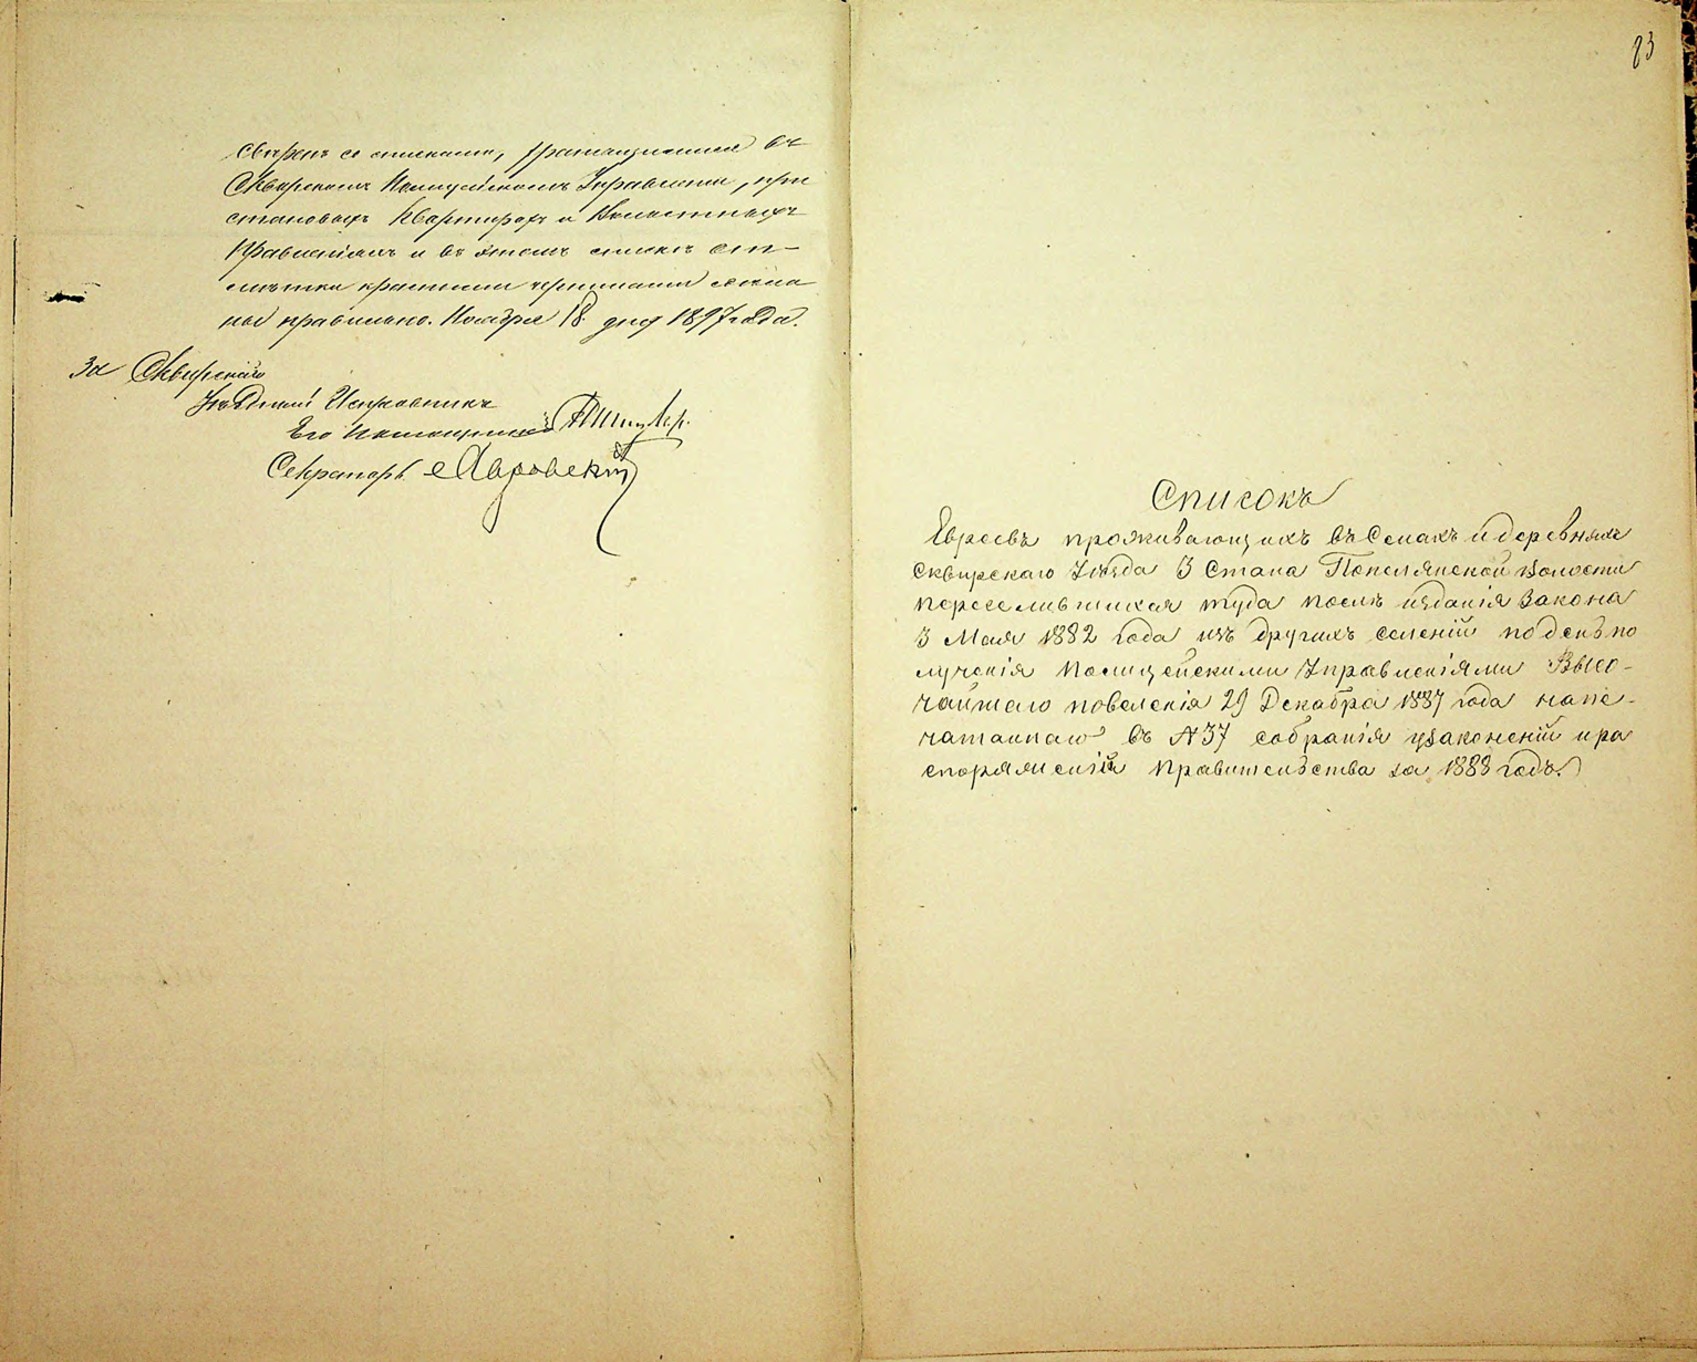 свѣренъ со списками, хранящимися въ
Сквирскомъ Полицейскомъ Управленіи, при
становыхъ Квартирахъ и Волостныхъ
Правленіяхъ и въ этомъ списке от-
мѣтки красными чернилами сдѣла
ны правильно. Ноября 18 дня 1897 года.
За Сквирскаго
Уѣзднаго Исправника
Его Помощникъ
Секретарь
23
Списокъ
Евреевъ проживающихъ въ Селахъ и деревняхъ
Сквирскаго Уѣзда 3 Стана Попелянской волости
переселившихся туда послѣ изданія Закона
3 Мая 1882 года изъ другихъ селеній по день по
лученія Полицейскими Управленіями Высо-
чайшаго повеленія 29 Декабря 1887 года напе-
чатаннаго въ № 37 собранія узаконеній и ра
споряженій Правительства за 1888 годъ.